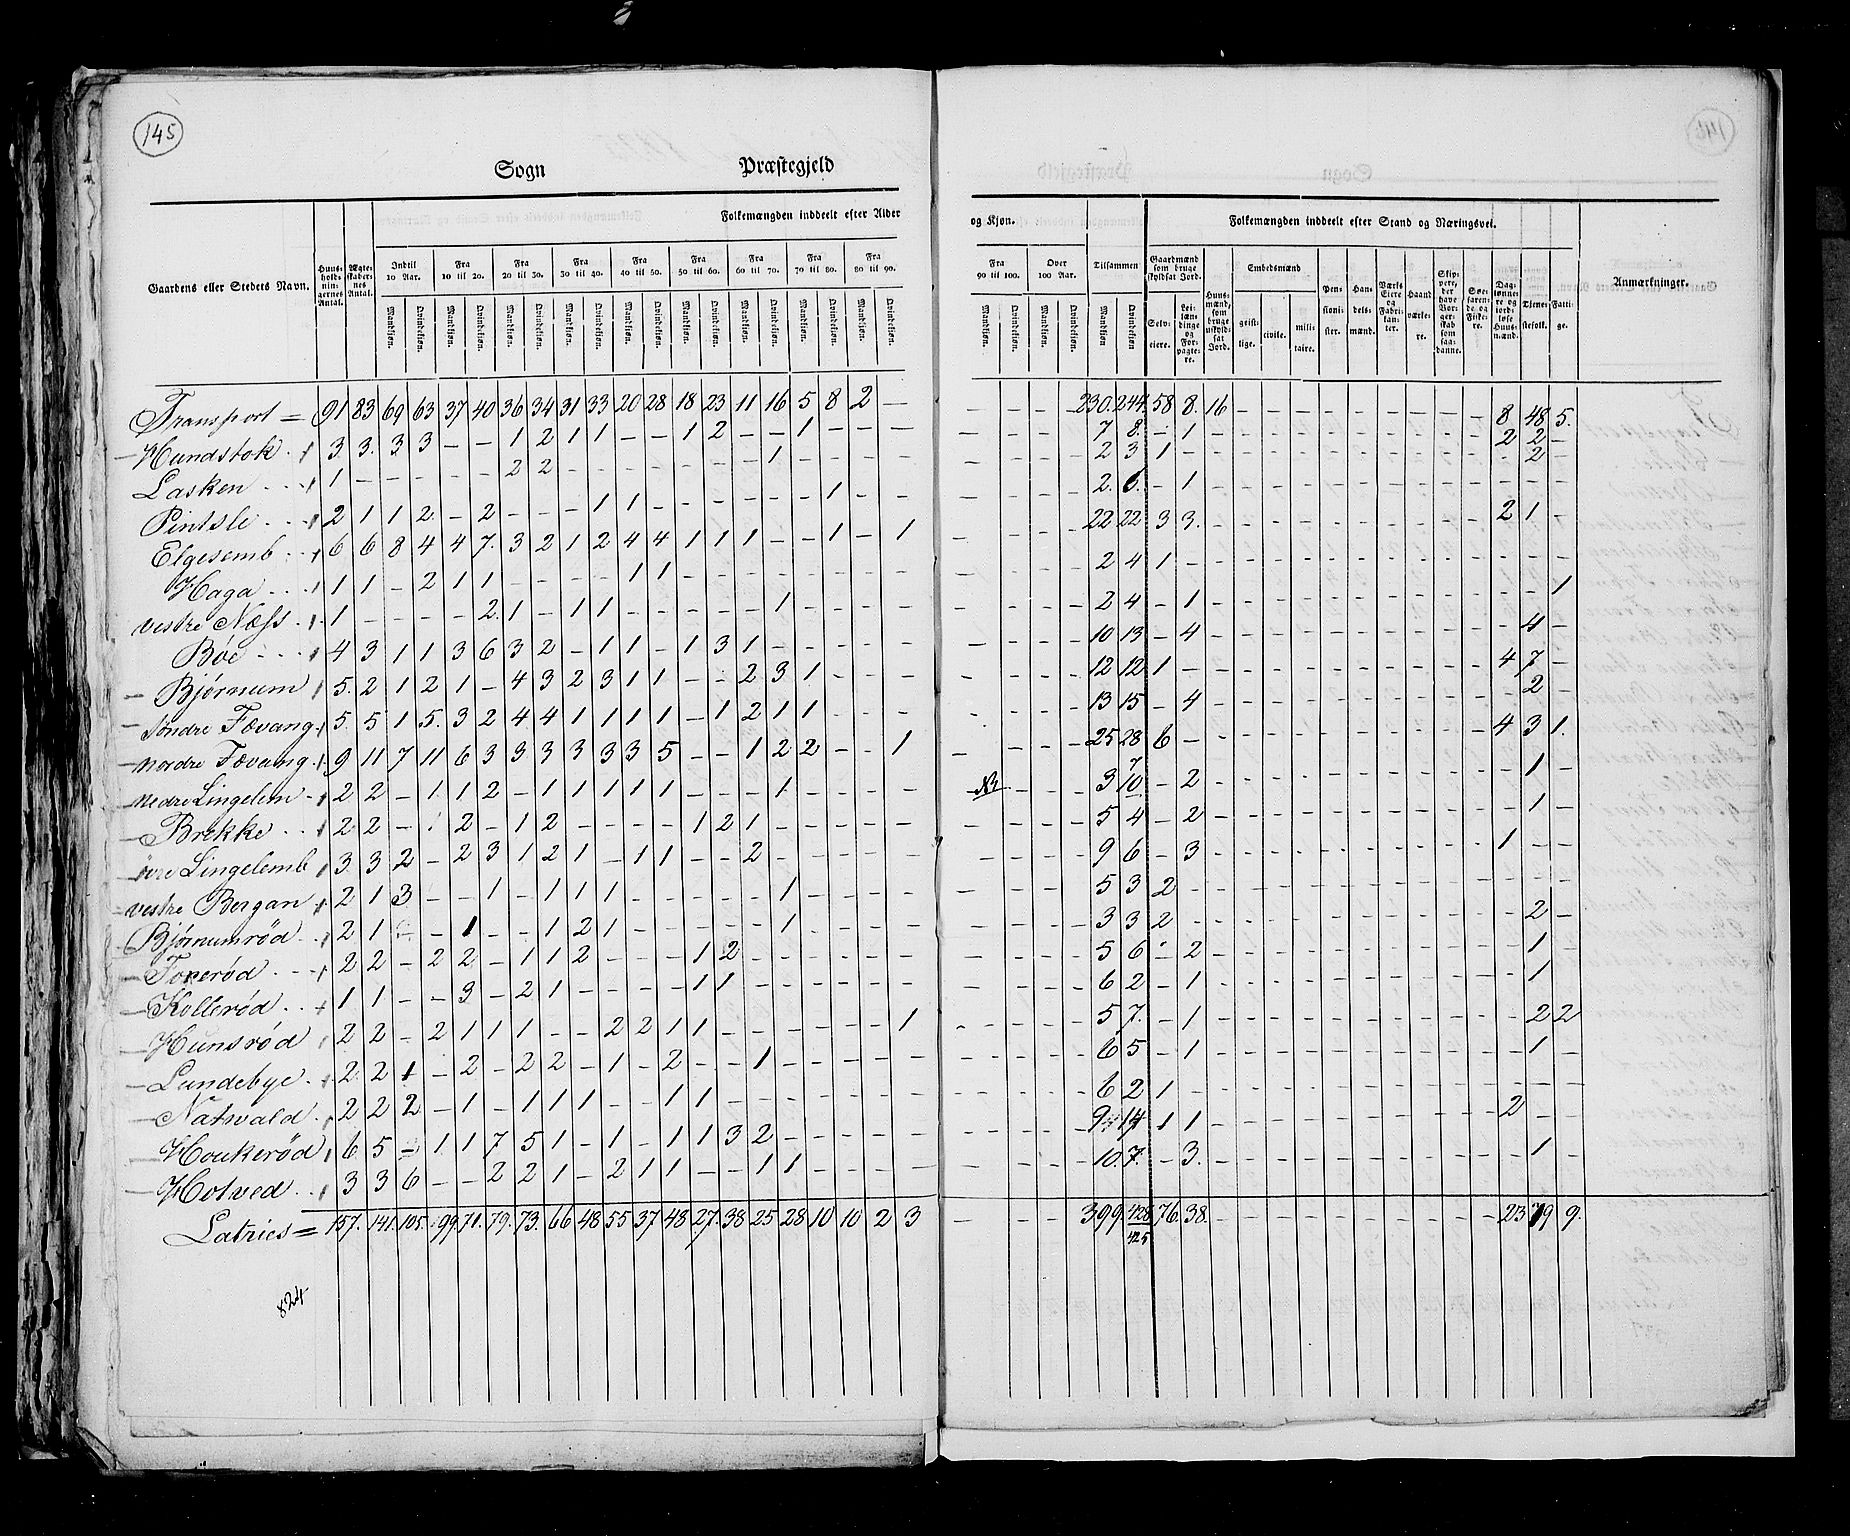 145
Sogn Præstegjeld
Folkemængden inddeelt efter Alder og Kjøn. Folkemængden inddeelt efter Stand og Næringsvei.
Gaardens eller Stedets Navn. Huusholdningernes Antal. Ægteskabernes Antal. Indtil 10 Aar. Fra 10 til 20. Fra 20 til 30. Fra 30 til 40. Fra 40 til 50. Fra 50 til 60. Fra 60 til 70. Fra 70 til 80. Fra 80 til 90. Fra 90 til 100. Over 100 Aar. Tilsammen Gaardmænd som bruge skyldsat Jord. Huusmænd, som bruge uskyldsat Jord. Embedsmænd Pensionister. Handelsmænd. Værks Eiere og Fabrikanter. Haandværkere. Skippere, der have Borgerskab som saadanne. Søefarende og Fiskere. Daglønnere og jordløse Huusmænd. Tjenestefolk. Fattige. Anmærkninger.
Mandkjøn. Qvindekjøn. Selveiere. Leilændinge og Forpagtere. geistlige. civile. militaire.
Transport = 91 83 69 63 37 40 36 34 31 33 20 28 18 23 11 16 5 8 2 — — — — — 230. 244. 58 8. 16 — — — — — — — — — 8 48 5.
Hundstok 3 3. 3 3 — — 1 2 1 1 — — 1 2 — — 1 — — — — — — — 7 8. — 1 — — — — — — — — — — 2 2 —
Lasken 1 — — — — — 2 2 — — — — — — — 1 — — — — — — — — 2 3 1 — — — — — — — — — — — — 2 —
Pintsle 2 1 1 2 — 2 — — — 1 1 — — — — — — 1 — — — — — — 2. 6. — 1 — — — — — — — — — — — — —
Elgesemb 6 6 8 4 4 7. 3 2 1 2 4 4 1 1 1 — — 1 — 1 — — — — 22 22 3 3. — — — — — — — — — — 2 1 —
Haga 1 1 — 2 1 1 — — — — 1 1 — — — — — — — — — — — — 2 4 1 — — — — — — — — — — — — — 1
vestre Næss 1 — — — — 2 1 — 1 1 — — — — — 1 — — — — — — — — 2 4 — 1 — — — — — — — — — — — — —
Böe 4 3 1 1 3 6 3 2 — 1 1 — 1 3 1 — — — — — — — — — 10 13 — 4 — — — — — — — — — — — 4 —
Bjørnum 5. 2 1 2 1 — 4 3 2 3 1 1 — — 2 3 1 — — — — — — — 12 12 1 — — — — — — — — — — — 4 7 —
söndre Fævang 5. 5 1 5. 3 2 4 4 1 1 1 1 — 1 2 1 1 — — — — — — — 13 15 — 4 — — — — — — — — — — — 2 —
nordre Fævang 9 11 7 11 6 3 3 3 3 3 3 5 — — 1 2 2 — — 1 — — — — 25 28 6 — — — — — — — — — — — 4 3 1.
nedre Lingelem 2 2 — 1 1 2 — 1 1 1 1 1 — — — 1 — — — — NB — — — 3 7 10 — 2 — — — — — — — — — — — 1 —
Brekke 2 2 — 1 2 — 1 2 — — — — 1 2 1 — — — — — — — — — 5 4 — 2 — — — — — — — — — — — 1 —
övre Lingelemb 3. 3 2 — 2 3 1 2 1 — 1 1 — — 2 — — — — — — — — — 9 6 — 3 — — — — — — — — — — 1 — —
vestre Bergan 2 1 3 — — 1 — 1 1 1 — — — — — 1 — — — — — — — — 5 3 2 — — — — — — — — — — — — — —
Bjørnumrød 2 1 — — 1 — — 1 2 1 — — — — — 1 — — — — — — — — 3 3 2 — — — — — — — — — — — — 2 —
Foxerød 2 2 — 2 2 — 1 1 2 — — — 1 2 — — — — — — — — — — 5 6 — 2 — — — — — — — — — — — 1 —
Kollerød 1 1 — — 3 — 2 1 — — — — 1 1 — — — — — — — — — — 6 2 — 1 — — — — — — — — — — — 1 —
Hunsrød 2 2 — 2 1 1 1 — — 2 2 1 1 — — — — — — 1 — — — — 5 7. — 1 — — — — — — — — — — — 2 2
Lundebye 2 2 1 — 2 — 2 2 — 1 — 2 — — 1 — — — — — — — — — 6 5 — 1 — — — — — — — — — — — 1 —
Natvald 2 2 2 — 1 — 1 1 1 — — 1 1 — — — — — — — — — — — 6 2 1 — — — — — — — — — — — 2 — —
Houkerød 6 5 — 1 1 7 5 1 — 1 — 1 1 3 2 — — — — — — — — — 9 14 1 1 — — — — — — — — — — — — —
Hotved 3 3 6 — — 2 2 1 — 2 1 1 — — 1 1 — — — — — — — — 10. 7. — 3. — — — — — — — — — — — 1 —
Latries = 157. 141. 105. 99. 71. 79. 73. 66 48 55 37 48 27. 38 25 28 10 10 2 3 — — — — 399. 428 425 76. 38. — — — — — — — — — — 23 79 9.
824